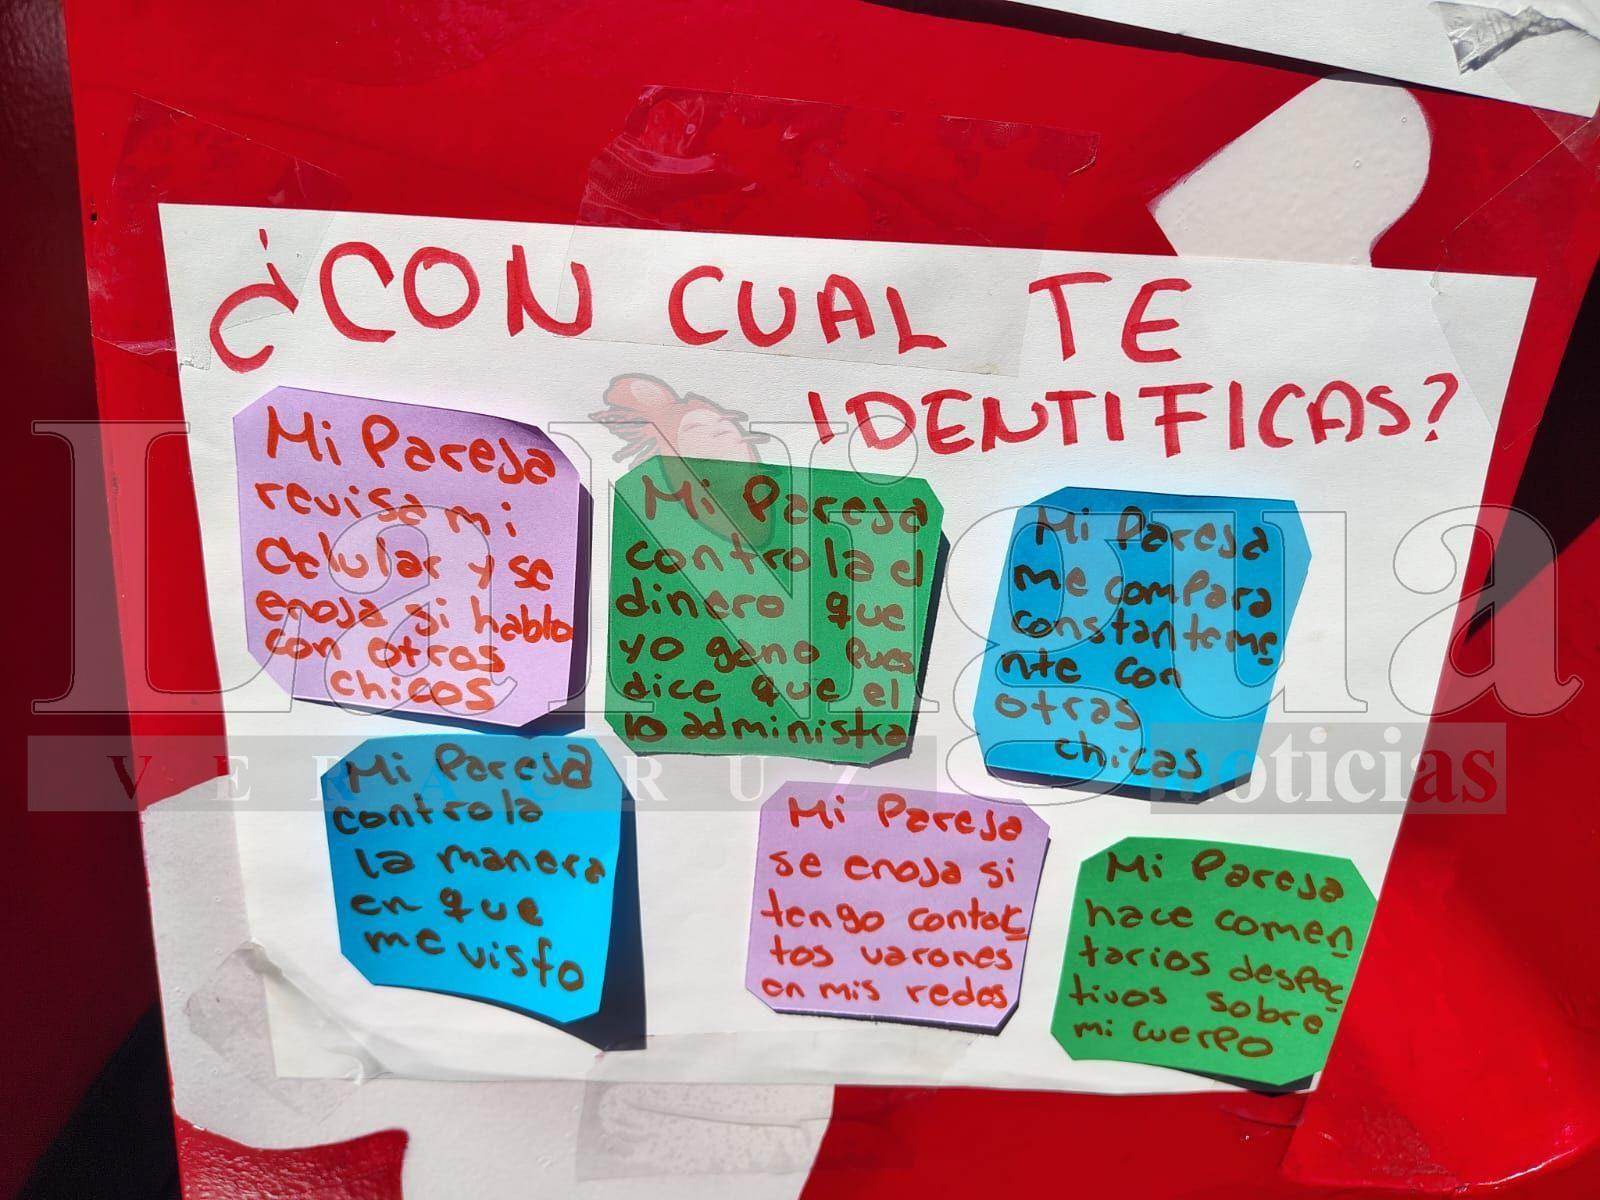 ¿CON CUAL TE
IDENTIFICAS?
Mi Pareja
revisa mi
celular y se
enoja si hablo
con otros
chicos
Mi Pareja
controla el
dinero que
yo gano pues
dice que el
lo administra
Mi Pareja
me compara
constanteme
nte con
otras
chicas
Mi Pareja
controla
la manera
en que
me visto
Mi Pareja
se enoja si
tengo contac
tos varones
en mis redes
Mi Pareja
hace comen
tarios despec
tivos sobre
mi cuerpo
La Nigua
VERACRUZ noticias